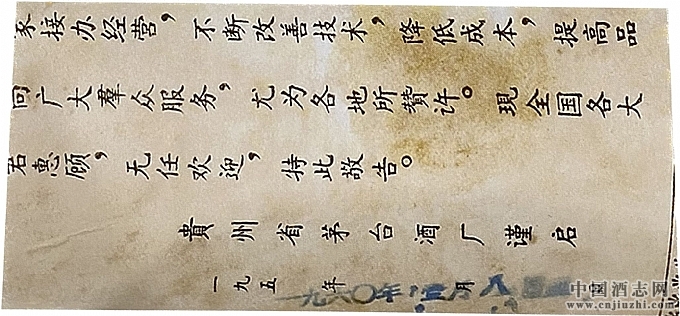 接办经营，不断改善技术，降低成本，提高品
回广大羣众服务，尤为各地所贊许。現全国各大
君惠顾，无任欢迎，特此敬告。
貴州省茅台酒厂谨启
一九五 年 月
一九六〇年 月
中国酒志网
www.cnjiuzhi.com